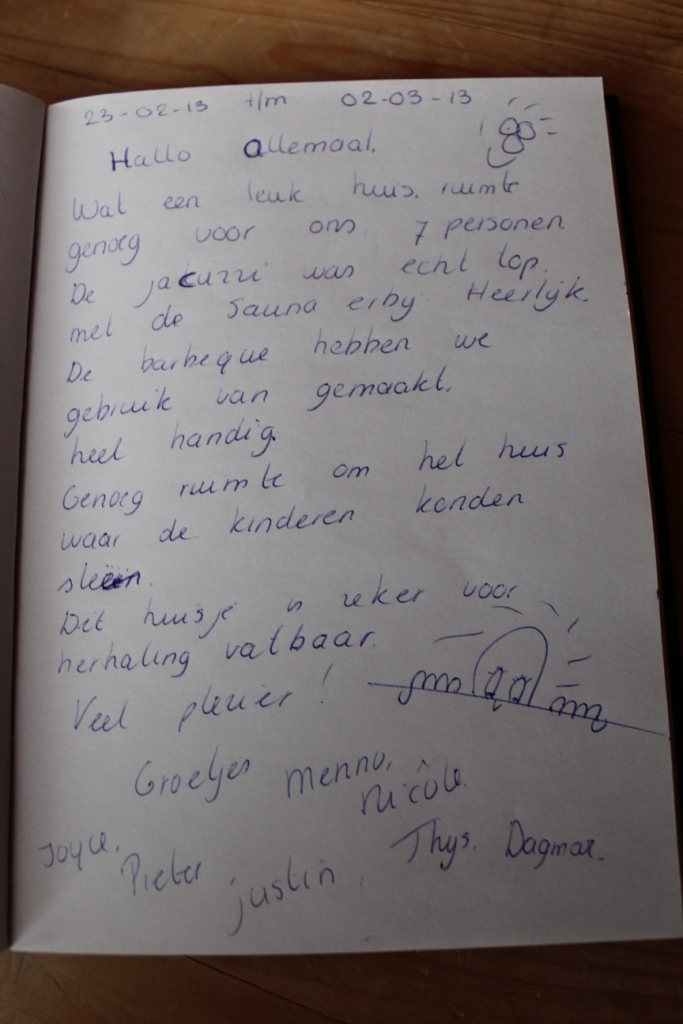 23-02-13 t/m 02-03-13
Hallo allemaal.
Wat een leuk huis. ruimte
genoeg voor ons 7 personen.
De jacuzzi was echt top.
met de Sauna erby Heerlijk.
De barbeque hebben we
gebruik van gemaakt.
heel handig.
Genoeg ruimte om het huis
waar de kinderen konden
sleeën.
Dit huisje is zeker voor
herhaling vatbaar.
Veel plezier!
Groetjes Menno,
Nicôle.
Joyce,
Pieter
justin,
Thys. Dagmar.